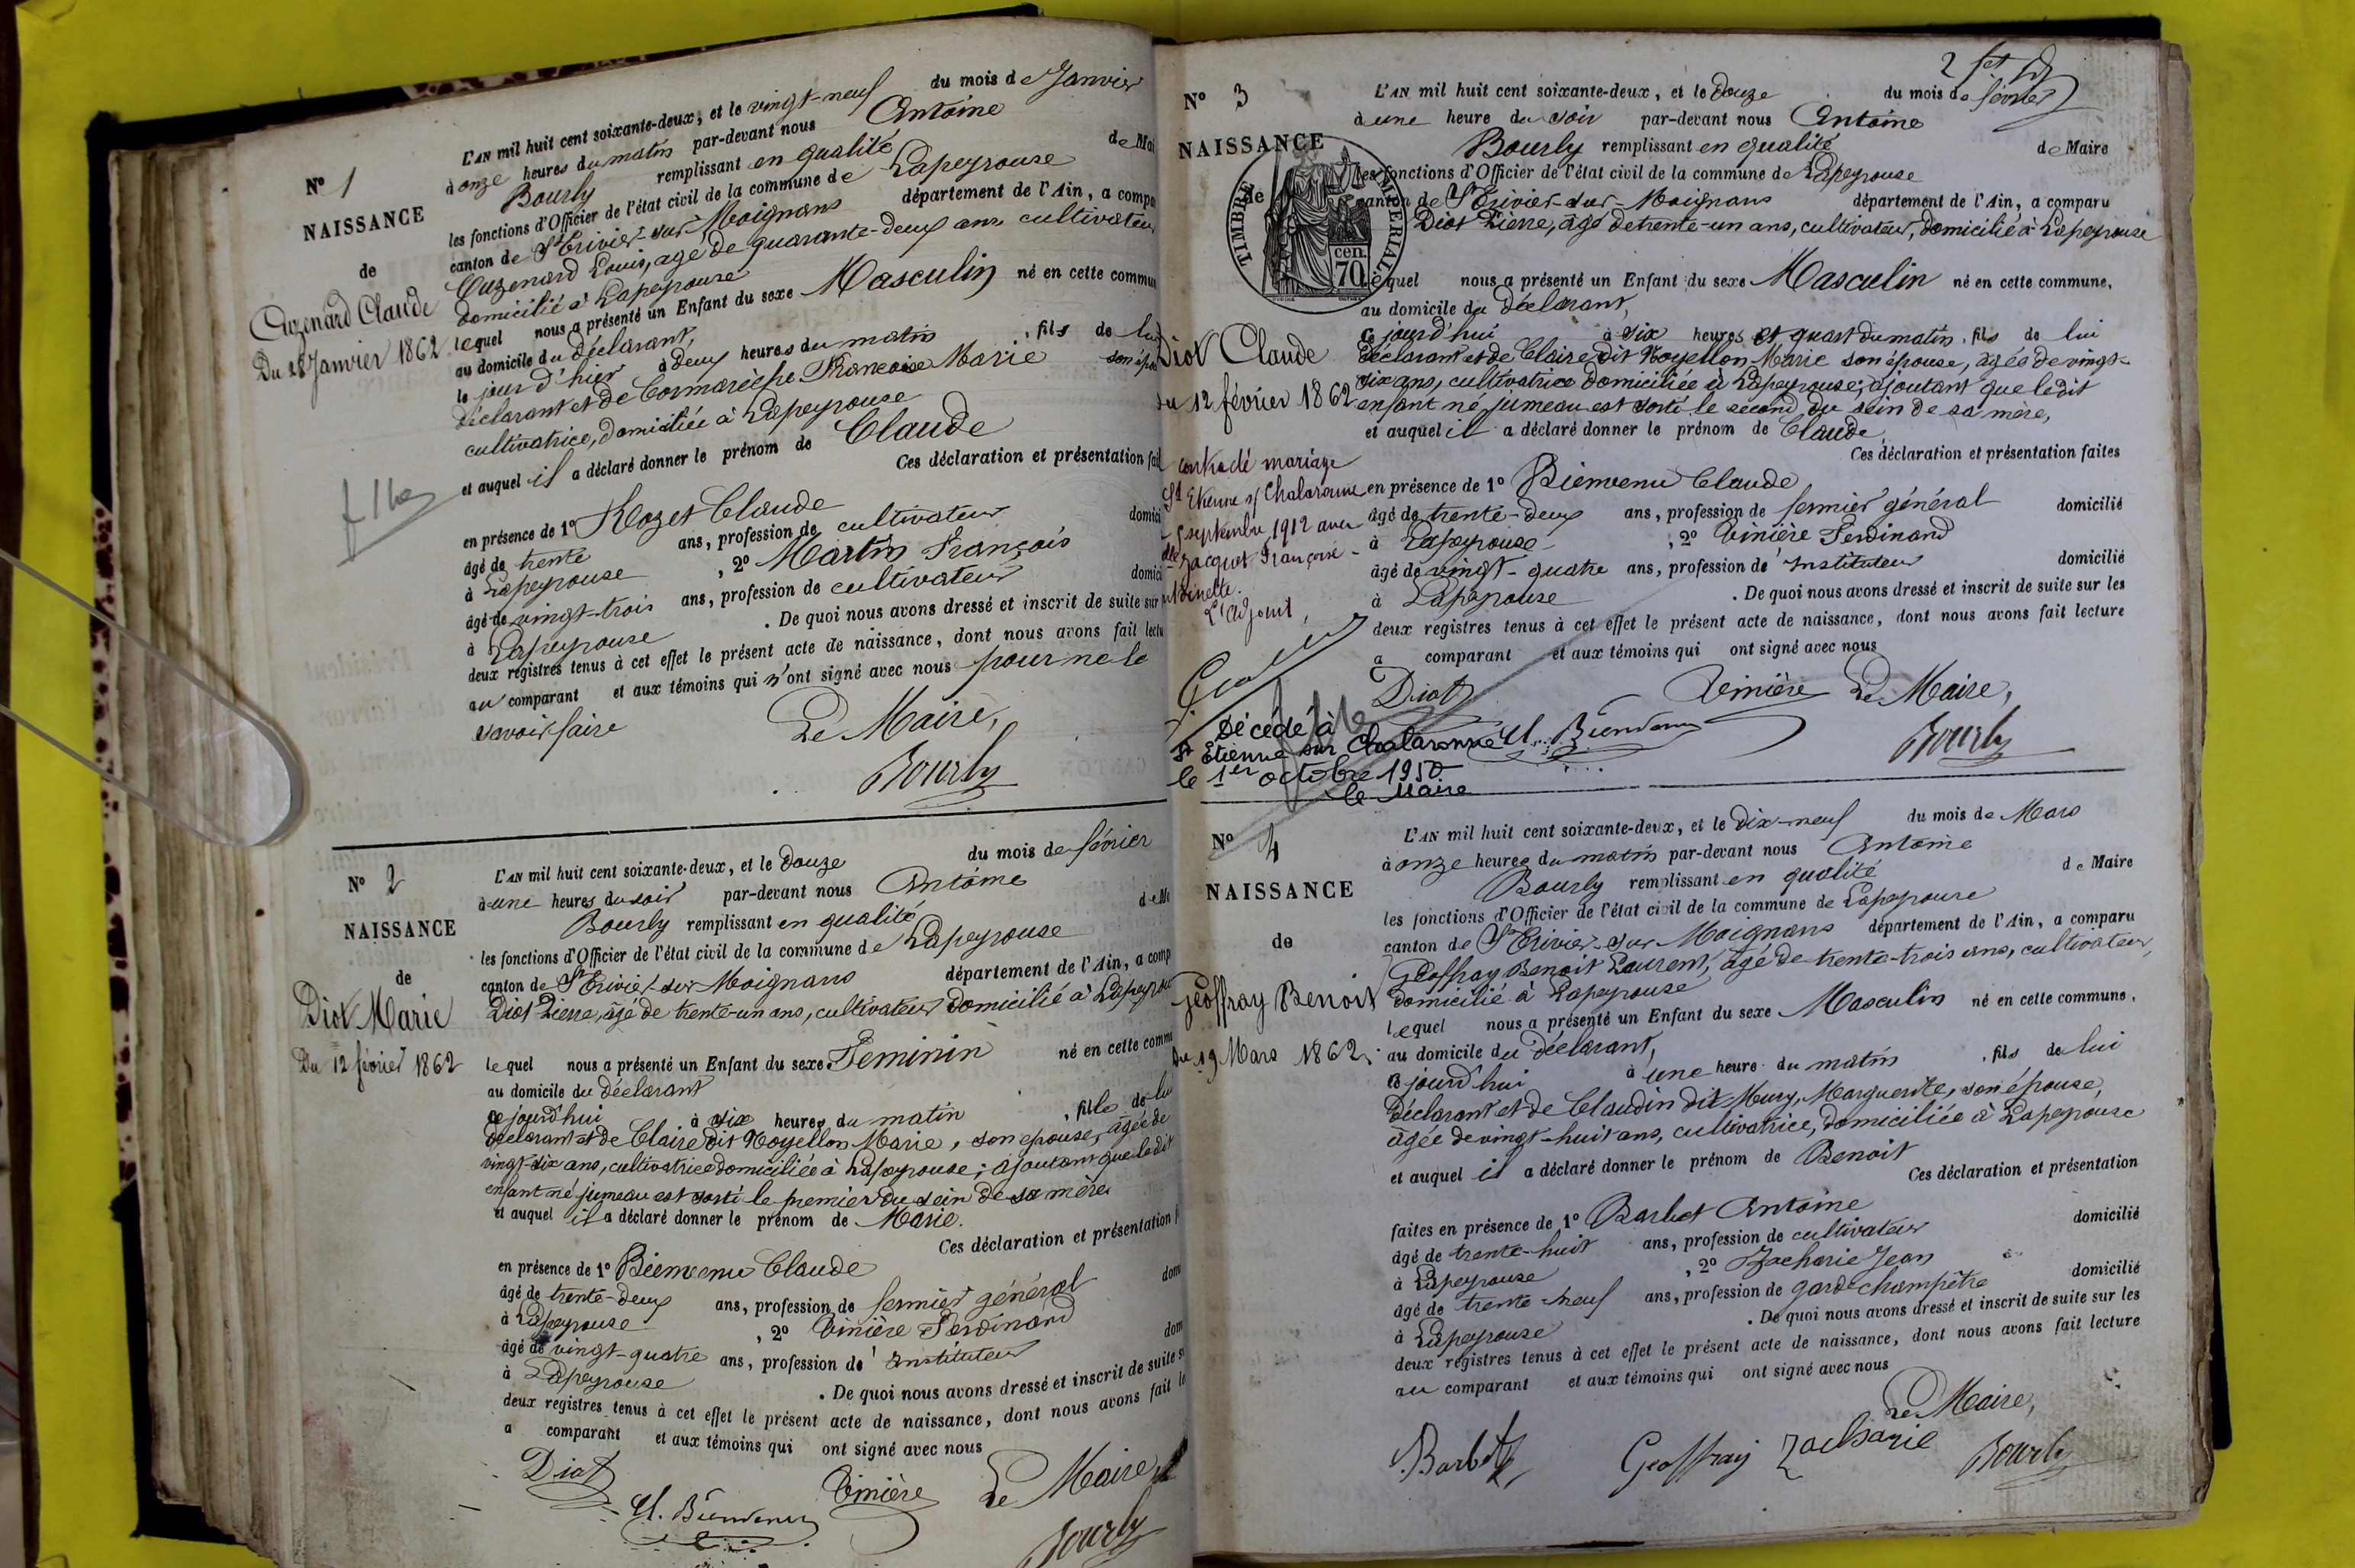 N° 1
NAISSANCE
de
Cuzenard Claude
Du 28 Janvier 1862
L'AN mil huit cent soixante-deux, et le vingt-neuf du mois de Janvier
à onze heures du matin par-devant nous Antoine
Bourly remplissant en qualité de Mai
les fonctions d'Officier de l'état civil de la commune de Lapeyrouse
canton de St Trivier-sur-Moignans département de l'Ain, a compa
Cuzenard Louis, agé de quarante-deux ans cultivateur
domicilié à Lapeyrouse
lequel nous a présenté un Enfant du sexe Masculin né en cette commun
au domicile du déclarant,
le jour d'hier à deux heures du matin, fils de lui
déclarant et de Cormarèche Françoise Marie son épou
cultivatrice, domiciliée à Lapeyrouse
et auquel il a déclaré donner le prénom de Claude
Ces déclaration et présentation fai
en présence de 1° Rozet Claude
âgé de trente ans, profession de cultivateur domici
à Lapeyrouse, 2° Martin François
âgé de vingt-trois ans, profession de cultivateur domici
à Lapeyrouse. De quoi nous avons dressé et inscrit de suite sur
deux registres tenus à cet effet le présent acte de naissance, dont nous avons fait lectu
au comparant et aux témoins qui n'ont signé avec nous pour ne le
savoir faire
Le Maire,
Bourly
N° 2
NAISSANCE
de
Diot Marie
Du 12 février 1862
L'AN mil huit cent soixante-deux, et le douze du mois de février
à une heures du soir par-devant nous Antoine
Bourly remplissant en qualité de M
les fonctions d'Officier de l'état civil de la commune de Lapeyrouse
canton de St Trivier-sur-Moignans département de l'Ain, a comp
Diot Pierre, âgé de trente-un ans, cultivateur domicilié à Lapeyrou
lequel nous a présenté un Enfant du sexe Feminin né en cette commu
au domicile du déclarant
ce jourd'hui à six heures du matin, fille de lui
déclarant et de Claire dit Noyellon Marie, son epouse, âgée de
vingt-six ans, cultivatrice domiciliée à Lapeyrouse; ajoutant que ledit
enfant né jumeau est sorti le premier du sein de sa mère
et auquel il a déclaré donner le prénom de Marie.
Ces déclaration et présentation f
en présence de 1° Bienvenu Claude
âgé de trente-deux ans, profession de fermier général dom
à Lapeyrouse, 2° Vinière Ferdinand
âgé de vingt-quatre ans, profession de Instituteur dom
à Lapeyrouse. De quoi nous avons dressé et inscrit de suite s
deux registres tenus à cet effet le présent acte de naissance, dont nous avons fait le
a comparant et aux témoins qui ont signé avec nous
Diot Vinière Le Maire
Cl. Bienvenu Bourly
N° 3
NAISSANCE
de
TIMBRE IMPERIAL
cen. 70
Diot Claude
du 12 février 1862
contracté mariage
St Etienne s/ Chalaronne
5 septembre 1912 avec
Jacquet Françoise
L'adjoint,
Décédé à
St Etienne sur Chalaronne
le 1er octobre 1950
le Maire
L'AN mil huit cent soixante-deux, et le douze du mois de février
à une heure du soir par-devant nous Antoine
Bourly remplissant en qualité de Maire
les fonctions d'Officier de l'état civil de la commune de Lapeyrouse
canton de St Trivier-sur-Moignans département de l'Ain, a comparu
Diot Pierre, âgé de trente-un ans, cultivateur, domicilié à Lapeyrouse
lequel nous a présenté un Enfant du sexe Masculin né en cette commune,
au domicile du déclarant,
ce jourd'hui à six heures et quart du matin, fils de lui
déclarant et de Claire dit Noyellon Marie son épouse, âgée de vingt-
six ans, cultivatrice domiciliée à Lapeyrouse; ajoutant que ledit
enfant né jumeau est sorti le second du sein de sa mère,
et auquel il a déclaré donner le prénom de Claude
Ces déclaration et présentation faites
en présence de 1° Bienvenu Claude
âgé de trente-deux ans, profession de fermier général domicilié
à Lapeyrouse, 2° Vinière Ferdinand
âgé de vingt-quatre ans, profession de Instituteur domicilié
à Lapeyrouse. De quoi nous avons dressé et inscrit de suite sur les
deux registres tenus à cet effet le présent acte de naissance, dont nous avons fait lecture
a comparant et aux témoins qui ont signé avec nous
Diot Vinière Le Maire,
Cl. Bienvenu Bourly
N° 4
NAISSANCE
de
Geoffray Benoit
Du 19 Mars 1862
L'AN mil huit cent soixante-deux, et le dix-neuf du mois de Mars
à onze heures du matin par-devant nous Antoine
Bourly remplissant en qualité de Maire
les fonctions d'Officier de l'état civil de la commune de Lapeyrouse
canton de St Trivier-sur-Moignans département de l'Ain, a comparu
Geoffray Benoit Laurent, âgé de trente-trois ans, cultivateur,
domicilié à Lapeyrouse
lequel nous a présenté un Enfant du sexe Masculin né en cette commune,
au domicile du déclarant,
ce jourd'hui à une heure du matin, fils de lui
déclarant et de Claudin dit Mury, Marguerite, son épouse,
âgée de vingt-huit ans, cultivatrice, domiciliée à Lapeyrouse
et auquel il a déclaré donner le prénom de Benoit
Ces déclaration et présentation
faites en présence de 1° Barbet Antoine
âgé de trente-huit ans, profession de cultivateur domicilié
à Lapeyrouse, 2° Zacharie Jean
âgé de trente-neuf ans, profession de garde champêtre domicilié
à Lapeyrouse. De quoi nous avons dressé et inscrit de suite sur les
deux registres tenus à cet effet le présent acte de naissance, dont nous avons fait lecture
au comparant et aux témoins qui ont signé avec nous
Le Maire,
Barbet Geoffray Zacharie Bourly